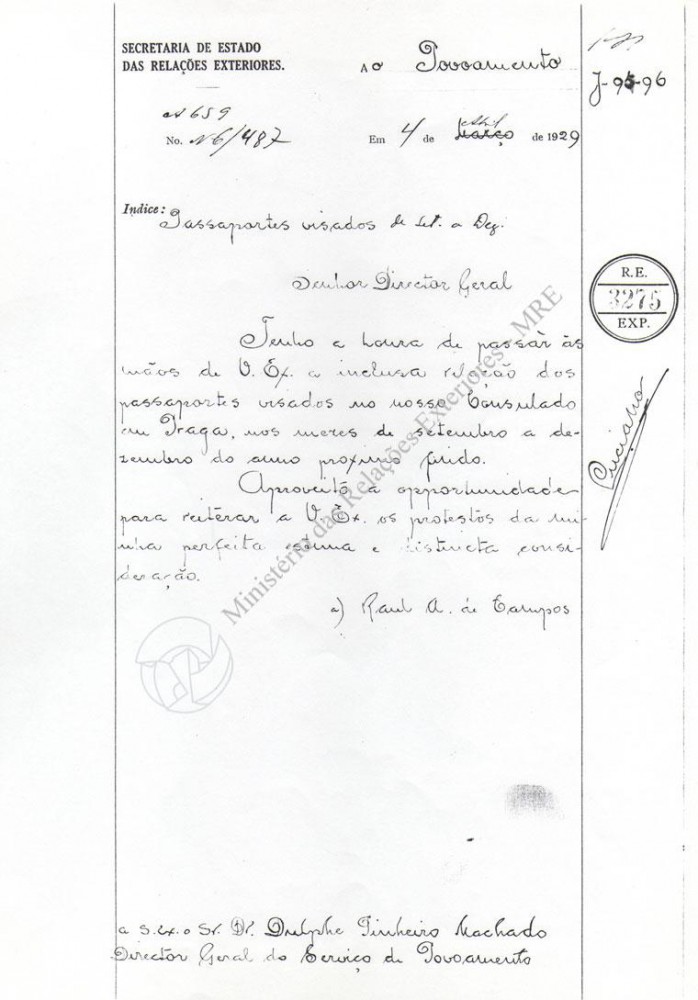 SECRETARIA DE ESTADO
DAS RELAÇÕES EXTERIORES.
AO Povoamento
J-95-96
A 659
No. N6/487
Em 4 de Março Abril de 1929
Indice: Passaportes visados de Set. a Dez.
Senhor Director Geral
R.E.
3275
EXP.
Tenho a honra de passar às
mãos de V. Ex. a inclusa relação dos
passaportes visados no nosso Consulado
em Praga, nos mezes de setembro a de-
zembro do anno proximo findo.
Aproveito a opportunidade
para reiterar a V. Ex. os protestos da mi-
nha perfeita estima e distincta consi-
deração.
a) Raul A. de Campos
Ministério das Relações Exteriores - MRE
a S. Ex. o Sr. Dr. Dulphe Pinheiro Machado
Director Geral do Serviço de Povoamento